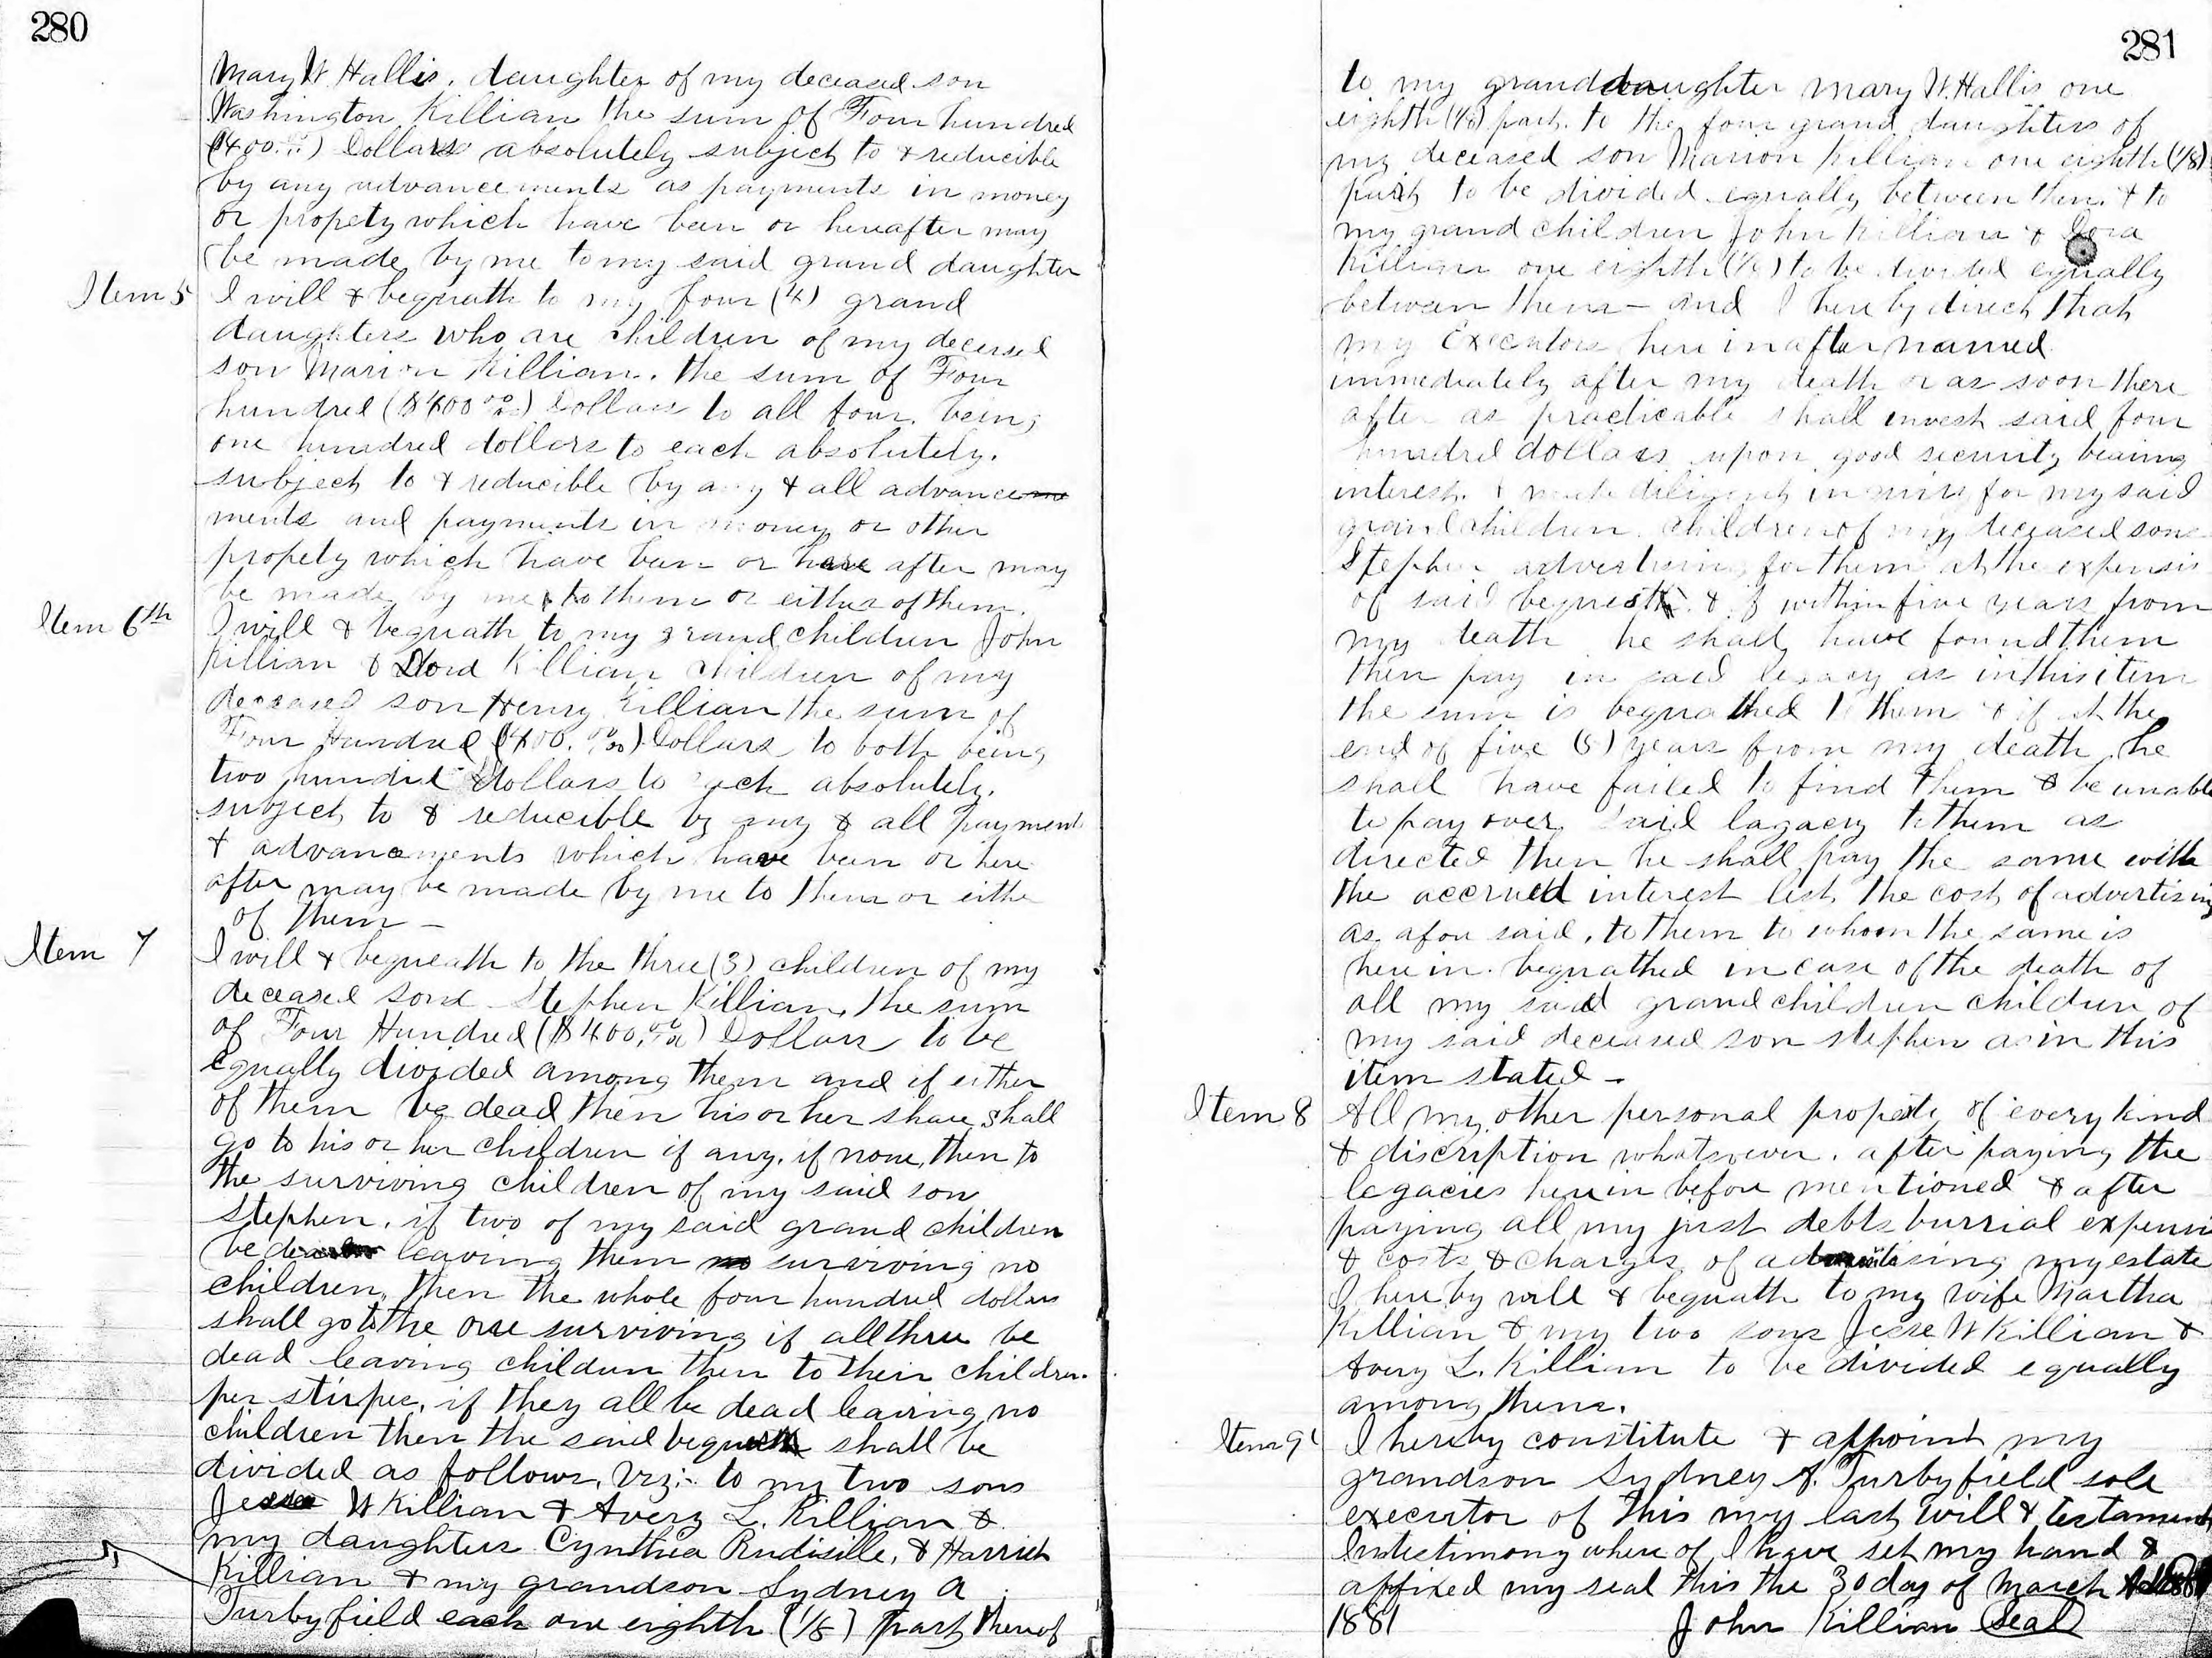 280
Mary W. Hallis, daughter of my deceased son
Washington Killian the sum of Four hundred
($400.00) Dollars absolutely subject to & reducible
by any advancements as payments in money
or propety which have been or hereafter may
be made by me to my said grand daughter
Item 5 I will & bequath to my four (4) grand
daughters who are children of my decesed
son Marion Killian. the sum of Four
hundred ($400 00/100) Dollars to all four, being
one hundred dollars to each absolutely.
subject to & reducible by any & all advance
ments and payments in money or other
propety which have been or here after may
be made by me to them or either of them.
Item 6th I will & bequath to my grand children John
Killian & Killian children of my
deceased son Henry Killian the sum of
Four Hundred ($400. 00/100) Dollars to both being
two hundred dollars to each absolutely.
subject to & reducible by any & all payments
& advancements which have been or here
after may be made by me to them or eithe
of them -
Item 7 I will & bequeath to the three (3) children of my
deceased son Stephen Killian, the sum
of Four Hundred ($400.00/100) Dollars to be
equally divided among them and if either
of them be dead then his or her share shall
go to his or her children if any, if none, then to
the surviving children of my said son
Stephen, if two of my said grand children
be leaving them surviving no
children, then the whole four hundred dollars
shall go to the one surviving if all three be
dead leaving children then to their children
per stirpes, if they all be dead leaving no
children then the said bequest shall be
divided as follows, Viz:- to my two sons
Jesse W Killian & Avery L. Killian &
my daughters Cynthia Rudisille, & Harriet
Killian & my grandson Sydney A
Turbyfield each one eighth (1/8) part thereof
281
to my granddaughter Mary W. Hallis one
eighth (1/8) part. to the four grand daughters of
my deceased son Marion Killian one eighth (1/8)
part to be divided equally between them. & to
my grand children John Killian &
Killian one eighth (1/8) to be divided equally
between them - and I here by direct that
my Executors here in after named
immediately after my death or as soon there
after as practicable shall invest said four
hundred dollars upon good security bearing
interest. & make diligent inquiry for my said
grand children children of my deceased son
Stephen advertising for them at the expense
of said bequest & if within five years from
my death he shall have found them
then pay said legacy as in this item
the sum is bequathed to them & if at the
end of five (5) years from my death he
shall have failed to find them & be unable
to pay over said lagacy to them as
directed then he shall pay the same with
the accrued interest less the cost of advertising
as afore said, to them to whom the same is
here in bequathed in case of the death of
all my said grand children children of
my said deceased son stephen as in this
item stated -
Item 8 All my other personal propety of every kind
& discription whatsoever. after paying the
legacies herein before mentioned & after
paying all my just debts burrial expenses
& costs & charges of my estate
I here by will & bequath to my wife Martha
Killian & my two sons Jesse W Killian &
Avery L. Killian to be divided equally
among them.
Item 9 I hereby constitute & appoint my
grandson Sydney A. Turbyfield sole
executor of this my last will & testament
In testimony where of I have set my hand &
affixed my seal this the 30 day of March
1881 John Killian Seal